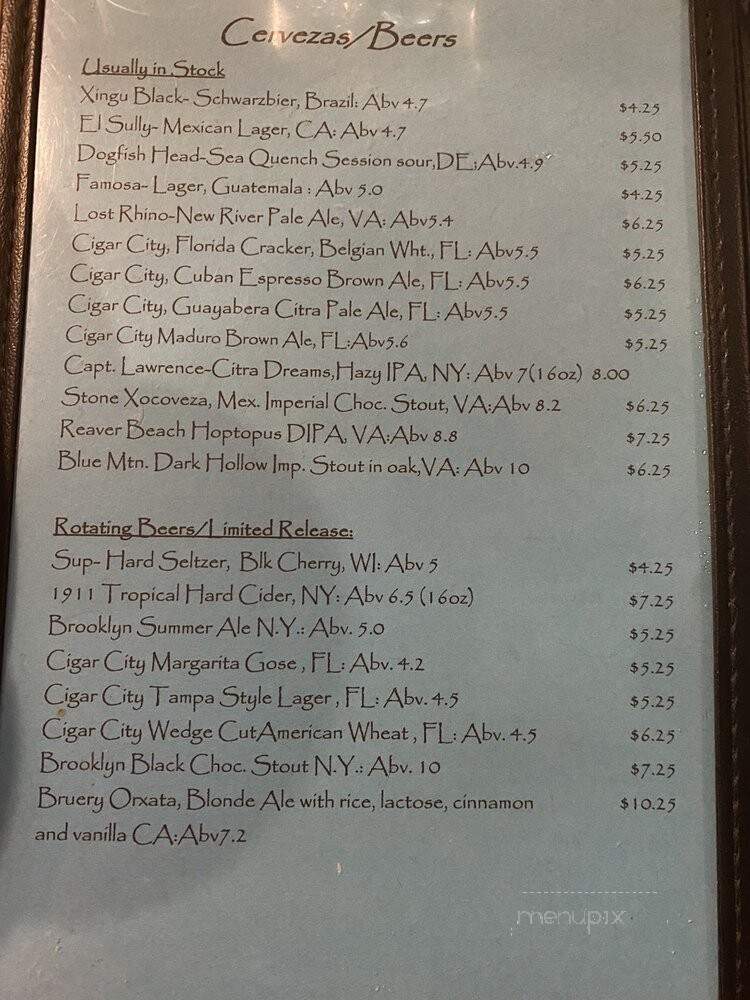 Cervezas/Beers
Usually in Stock
Xingu Black- Schwarzbier, Brazil: Abv 4.7 $4.25
El Sully- Mexican Lager, CA: Abv 4.7 $5.50
Dogfish Head-Sea Quench Session sour,DE;Abv.4.9 $5.25
Famosa- Lager, Guatemala : Abv 5.0 $4.25
Lost Rhino-New River Pale Ale, VA: Abv5.4 $6.25
Cigar City, Florida Cracker, Belgian Wht., FL: Abv5.5 $5.25
Cigar City, Cuban Espresso Brown Ale, FL: Abv5.5 $6.25
Cigar City, Guayabera Citra Pale Ale, FL: Abv5.5 $5.25
Cigar City Maduro Brown Ale, FL:Abv5.6 $5.25
Capt. Lawrence-Citra Dreams,Hazy IPA, NY: Abv 7(16oz) 8.00
Stone Xocoveza, Mex. Imperial Choc. Stout, VA:Abv 8.2 $6.25
Reaver Beach Hoptopus DIPA, VA:Abv 8.8 $7.25
Blue Mtn. Dark Hollow Imp. Stout in oak,VA: Abv 10 $6.25
Rotating Beers/Limited Release:
Sup- Hard Seltzer, Blk Cherry, WI: Abv 5 $4.25
1911 Tropical Hard Cider, NY: Abv 6.5 (16oz) $7.25
Brooklyn Summer Ale N.Y.: Abv. 5.0 $5.25
Cigar City Margarita Gose , FL: Abv. 4.2 $5.25
Cigar City Tampa Style Lager , FL: Abv. 4.5 $5.25
Cigar City Wedge CutAmerican Wheat , FL: Abv. 4.5 $6.25
Brooklyn Black Choc. Stout N.Y.: Abv. 10 $7.25
Bruery Orxata, Blonde Ale with rice, lactose, cinnamon $10.25
and vanilla CA:Abv7.2
menupix